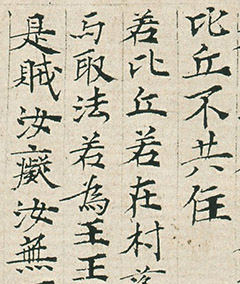 比丘不共住
若比丘若在村落
与取法若為王王
是賊汝癡汝無